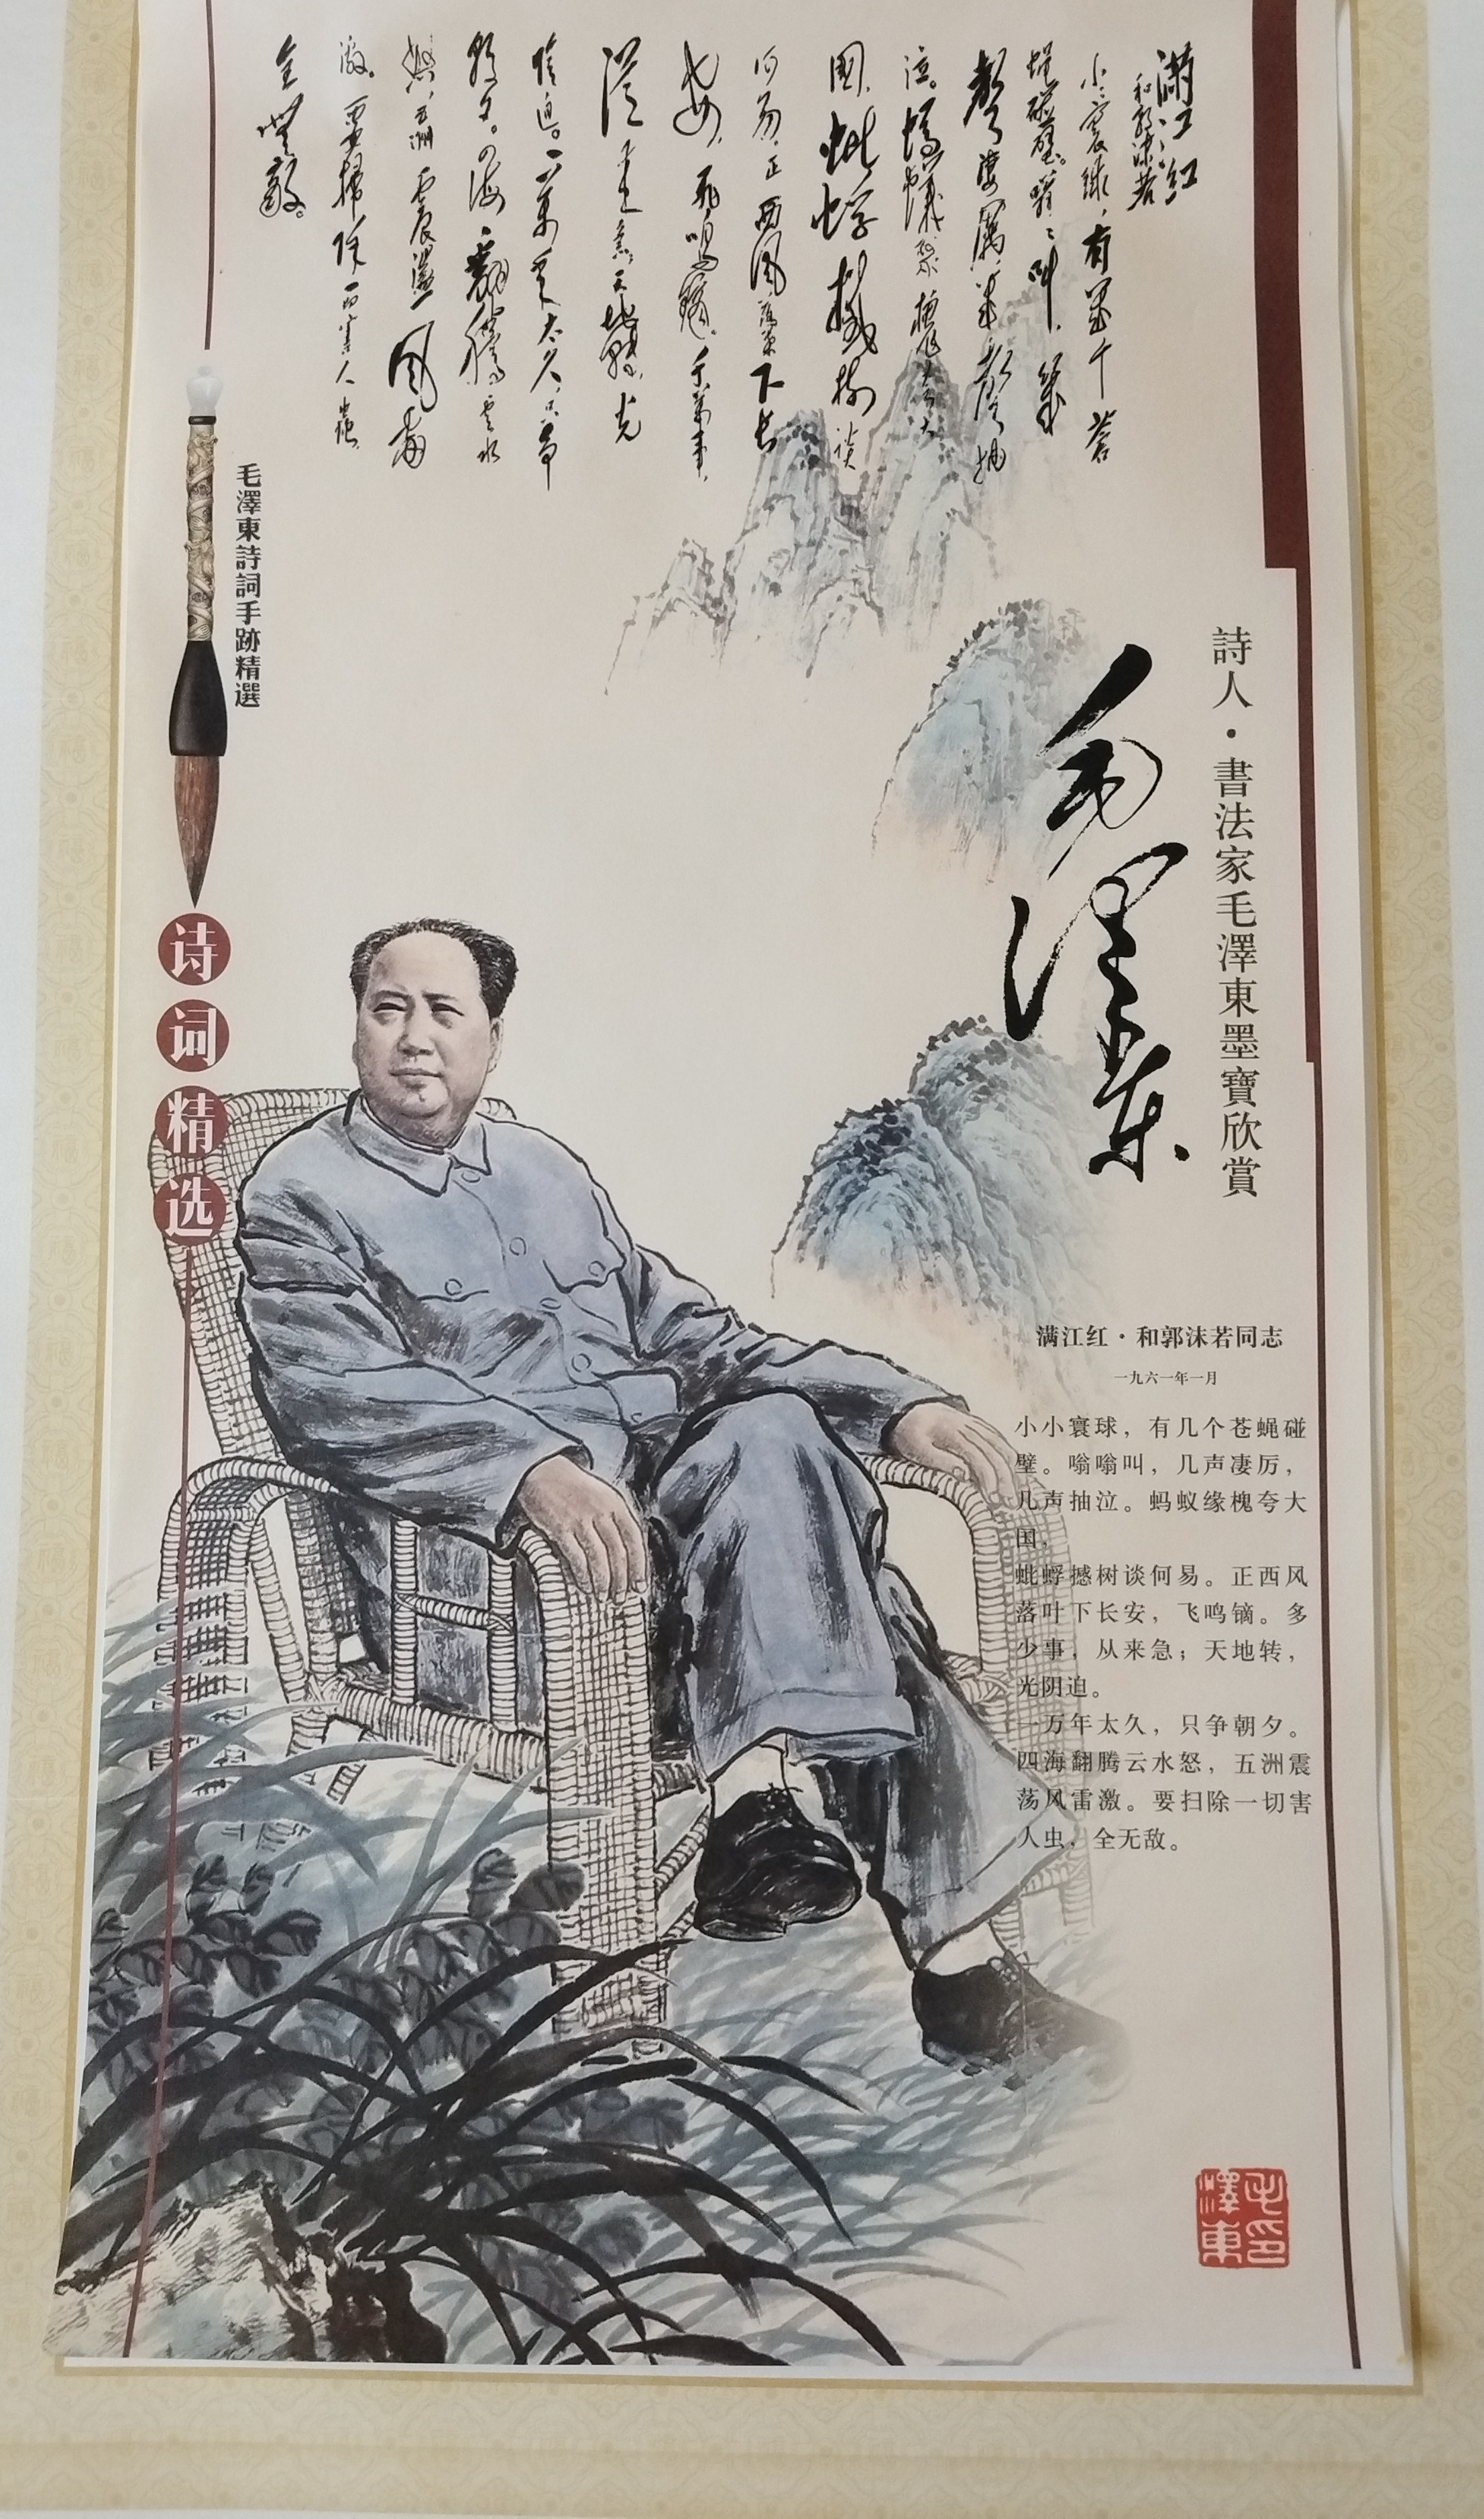 滿江紅
和郭沫若
小小寰球，有幾个苍
蝇碰壁。嗡嗡叫，幾
聲凄厲，幾聲抽
泣。螞蟻緣槐夸大
國，蚍蜉撼樹談
何易。正西風落葉下長
安，飛鳴鏑。千萬事，
從来急，天地轉，光
陰迫。一萬年太久，只争
朝夕。四海翻騰雲水
怒，五洲震盪風雷
激。要掃除一切害人蟲，
全無敵。
毛澤東詩詞手跡精選
诗词精选
詩人·書法家毛澤東墨寶欣賞
毛澤東
满江红·和郭沫若同志
一九六一年一月
小小寰球，有几个苍蝇碰
壁。嗡嗡叫，几声凄厉，
几声抽泣。蚂蚁缘槐夸大
国，
蚍蜉撼树谈何易。正西风
落叶下长安，飞鸣镝。多
少事，从来急；天地转，
光阴迫。
一万年太久，只争朝夕。
四海翻腾云水怒，五洲震
荡风雷激。要扫除一切害
人虫，全无敌。
毛印
澤東